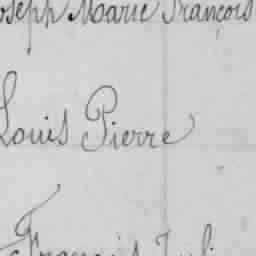 Joseph Marie François
Louis Pierre
François Juli